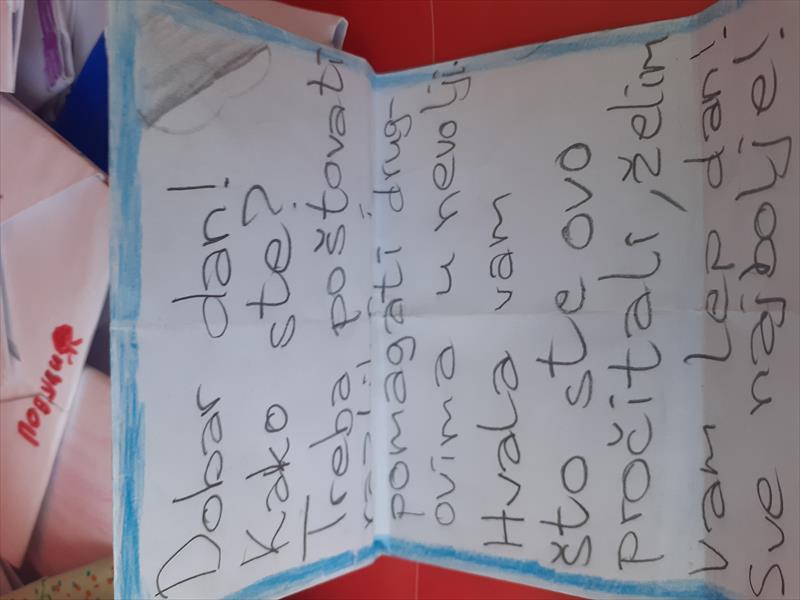 Dobar dan!
Kako ste?
Treba poštovati
i
pomagati drug-
ovima u nevolji.
Hvala vam
što ste ovo
pročitali, želim
vam lep dan!
Sve najbolje!